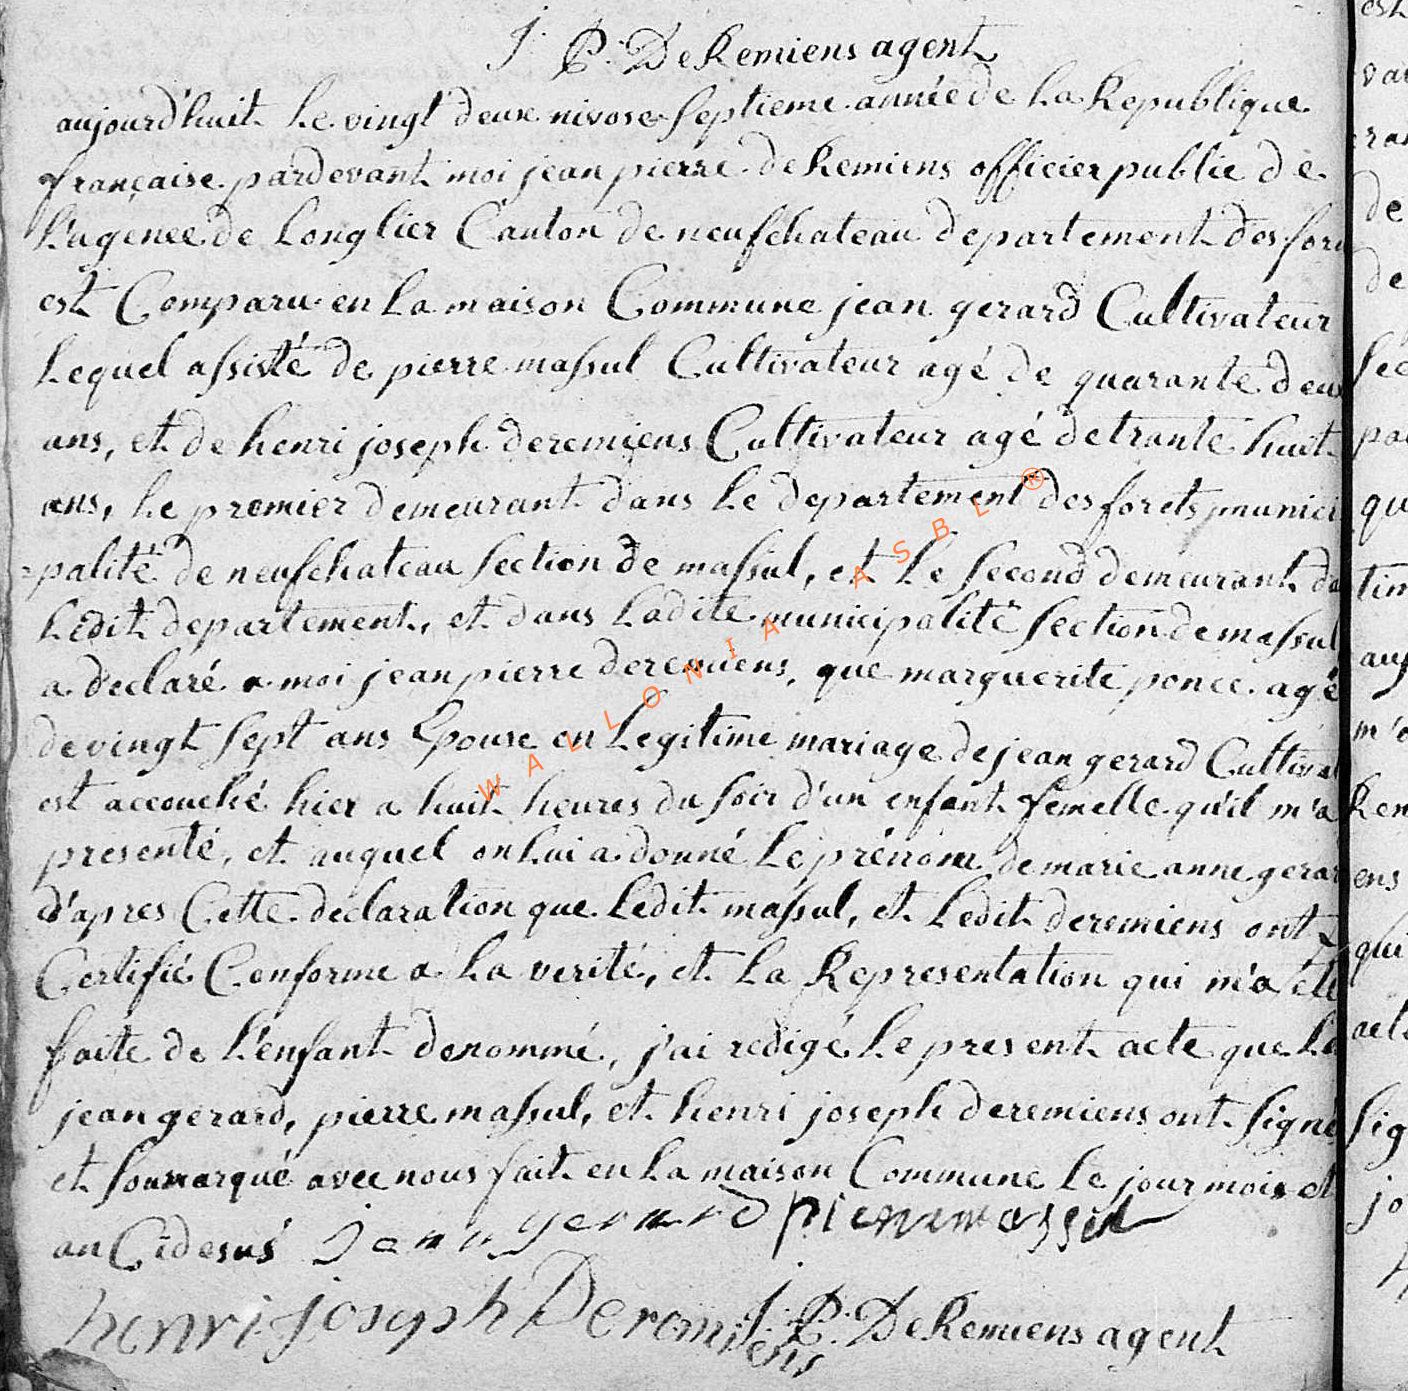 J: P: DeRemiens agent
aujourd'huit le vingt deux nivose septieme année de la Republique
française pardevant moi jean pierre deRemiens officier public de
l'agence de Longlier Canton de neufchateau departement des foré
est Comparu en la maison Commune jean gerard Cultivateur
Lequel assisté de pierre massul Cultivateur agé de quarante deux
ans, et de henri joseph deremiens Cultivateur agé de trante huit
ans, le premier demeurant dans le departement des forets munici
=palité de neufchateau section de massul, et le second demeurant da
ledit departement, et dans ladite municipalité section de massul
a declaré a moi jean pierre deremiens, que marguerite ponce agé
de vingt sept ans Epouse en legitime mariage de jean gerard Cultivat
est accouché hier a huit heures du soir d'un enfant femelle qu'il m'a
presenté, et auquel on lui a donné le prénom de marie anne gerar
d'apres Cette declaration que ledit massul, et ledit deremiens ont
Certifié Conforme a la verité, et la Representation qui m'a été
faite de l'enfant denommé, j'ai redigé le present acte que le
jean gerard, pierre massul, et henri joseph deremiens ont signé
et soumarqué avec nous fait en la maison Commune le jour mois et
an Cidesus jean gerard pierre massul
henri joseph Deremiens J: P: DeRemiens agent
WALLONIA ASBL ®